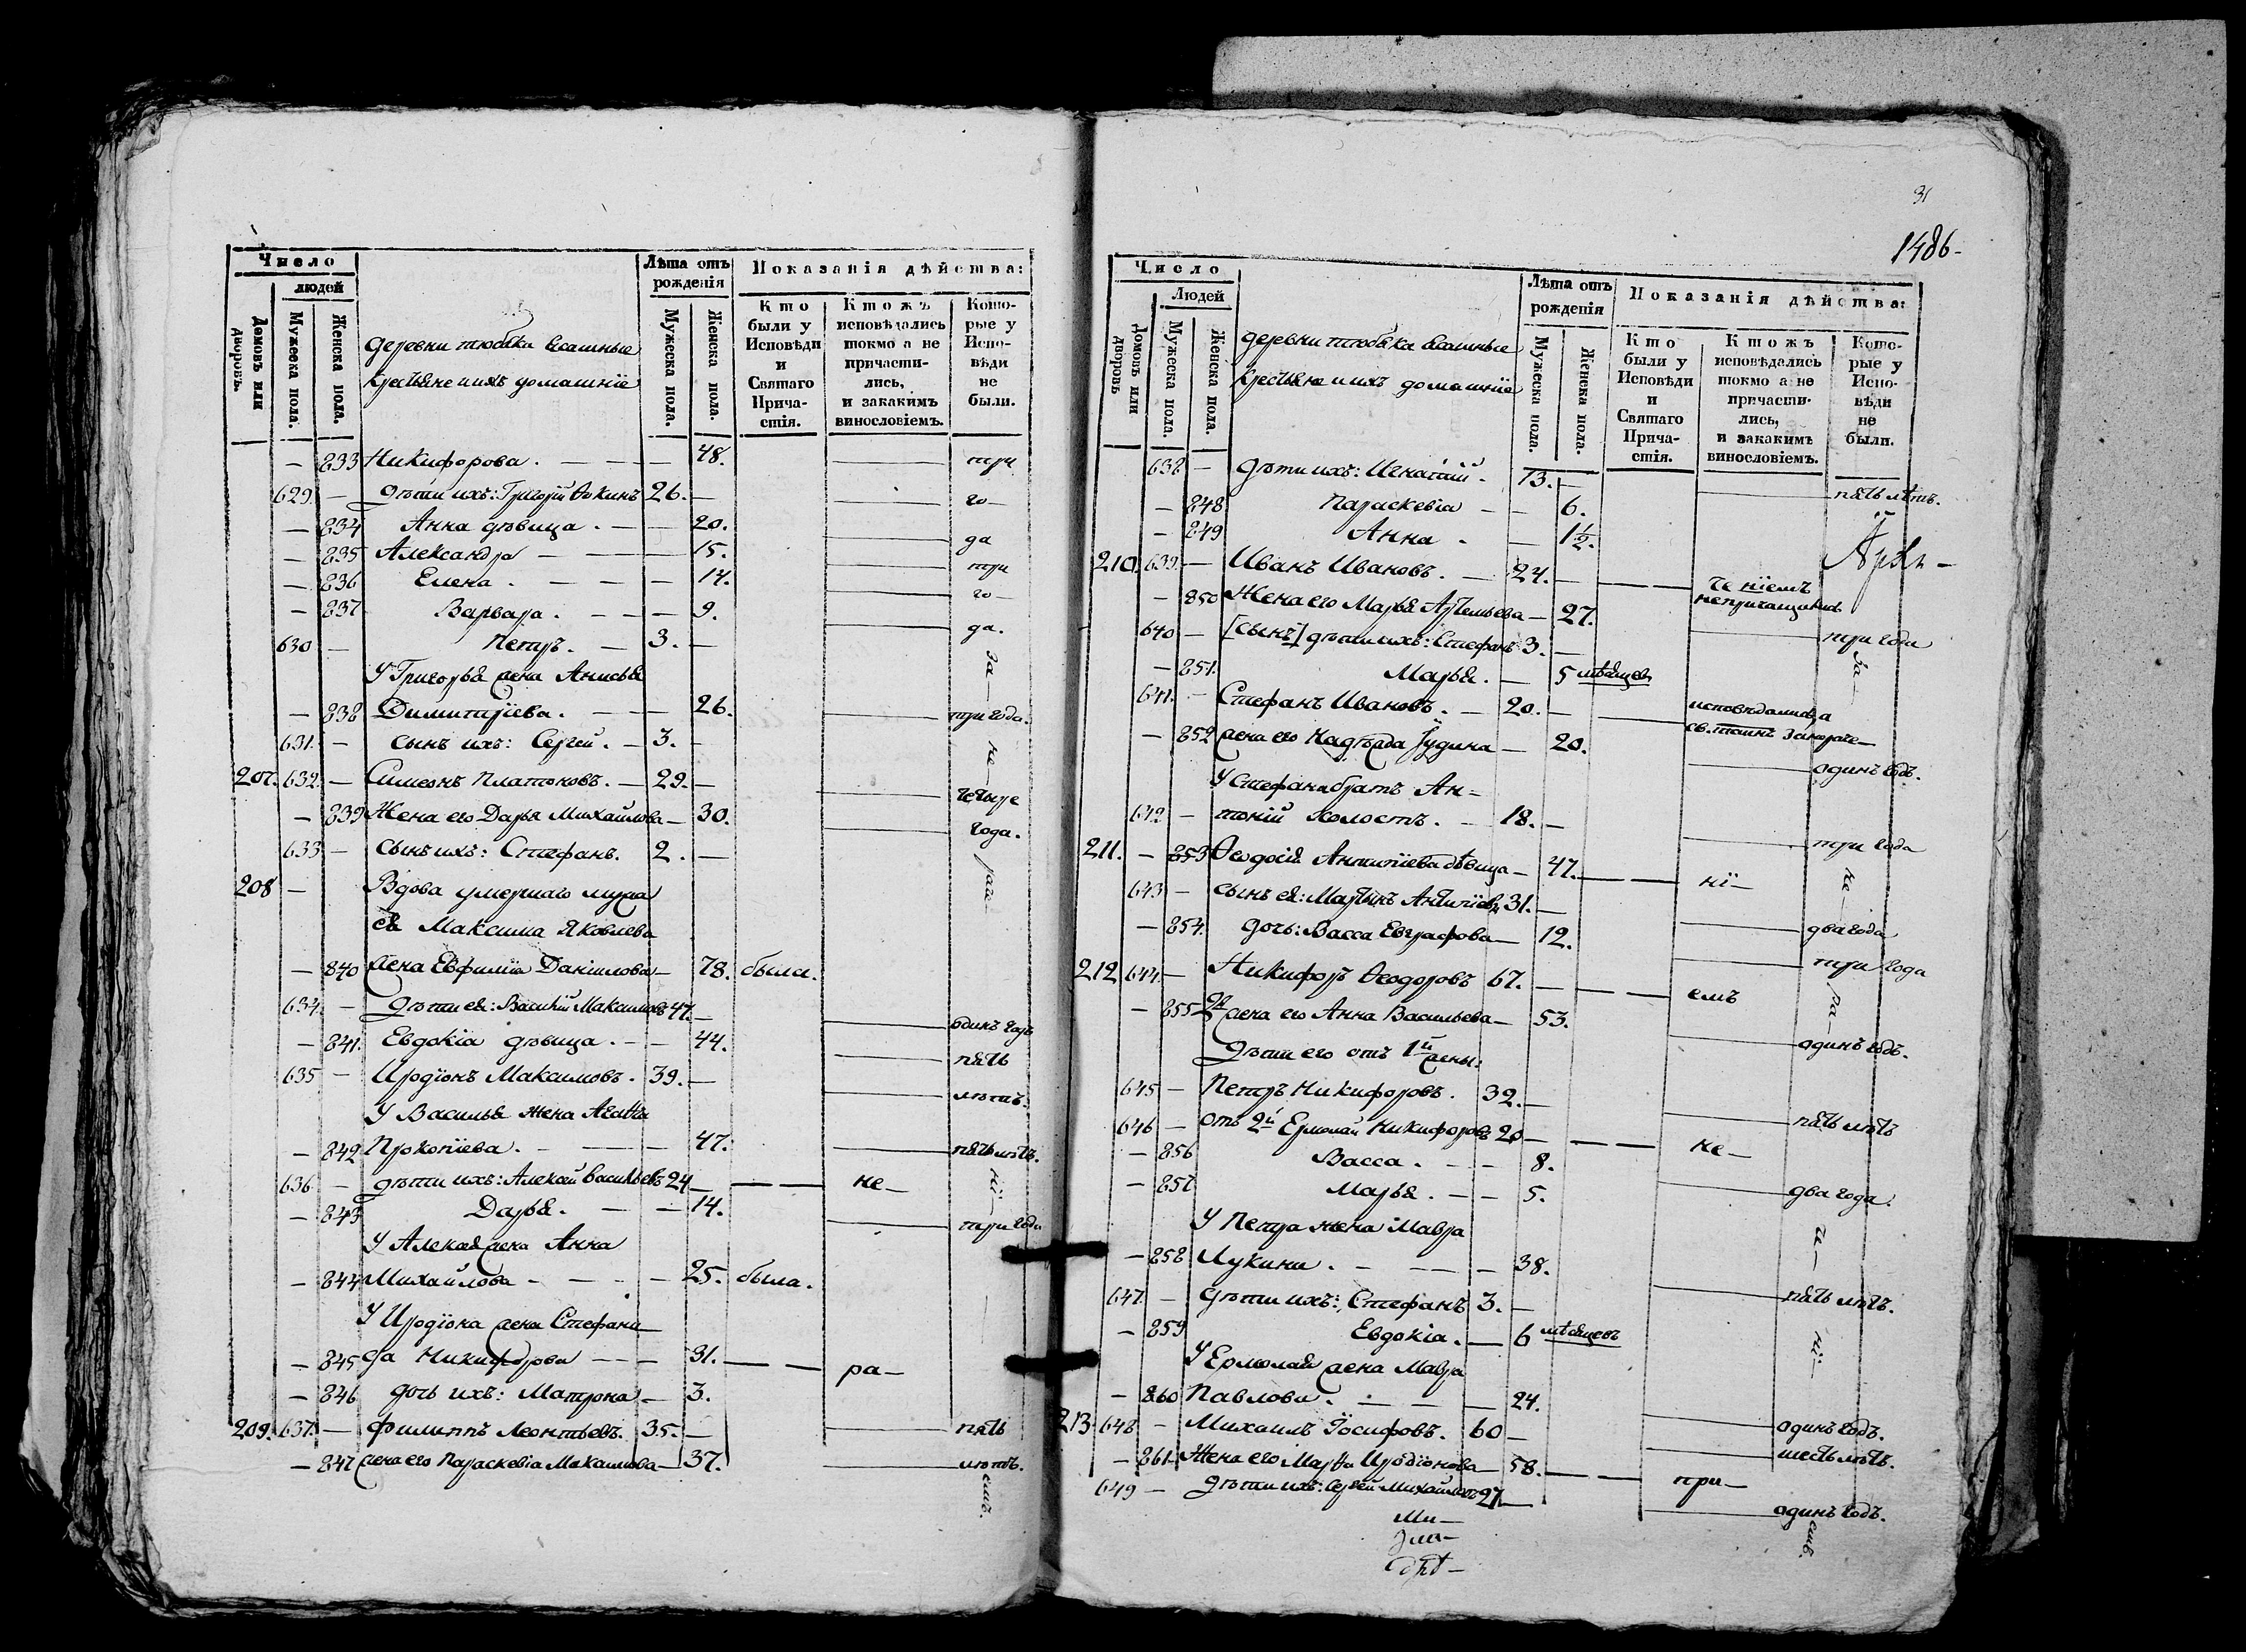 Число
людей
Домовъ или дворовъ.
Мужеска пола.
Женска пола.
деревни тюбяка ясашные
крестьяне и ихъ домашнїе
Лѣта отъ рожденія
Мужеска пола.
Женска пола.
Показанія дѣйства:
Кто были у Исповѣди и Святаго Причастія.
Ктожъ исповѣдались токмо а не причастились, и закакимъ винословіемъ.
Которые у Исповѣди не были.
— 833 Никифорова. — — — 48. три
629. — дѣти ихъ: Григорїй Фокинъ 26. — го—
— 834 Анна дѣвица. — — 20. да
— 835 Александра — — — 15. три
— 836 Елена. — — — 14. го—
— 837 Варвара. — — — 9. да.
630 — Петръ. — 3. —
У Григорья жена Анисья за—
— 838 Димитрїева. — — 26. три года.
631. — сынъ ихъ: Сергей. — 3. — не—
207. 632. — Симеонъ Платоновъ. — 29. — четыре
— 839 Жена его Дарья Михайлова — 30. года.
633 — сынъ ихъ: Стефанъ. 2. —
208 — Вдова умершаго мужа
ея Максима Яковлева
— 840 жена Евфимїа Данїилова — 78. была.
634. — дѣти ея: Василїй Максимовъ 47. — одинъ годъ
— 841. Евдокїа дѣвица. — — 44. пять
635 — Иродїонъ Максимовъ. 39. — лѣтъ.
У Василья жена Агафья
— 842 Прокопїева. — — — 47. пять лѣтъ.
636 — дѣти ихъ: Алексей Васильевъ 24 — — — не— нї—
— 843 Дарья. — — 14. три года
У Алексея жена Анна
— 844 Михайлова — — — 25. была.
У Иродїона жена Стефани
— 845 да Никифорова — — — 31. — — ра—
— 846 дочь ихъ: Матрона — 3.
209. 637. — Филиппъ Леонтьевъ. 35. — пять
— 847 жена его Параскевїа Максимова — 37. лѣтъ.
емъ.
31
1486-
Число
Людей
Домовъ или дворовъ
Мужеска пола.
Женска пола.
деревни тюбяка ясашные
крестьяне и ихъ домашнїе
Лѣта отъ рожденія
Мужеска пола.
Женска пола.
Показанія дѣйства:
Кто были у Исповѣди и Святаго Причастія.
Ктожъ исповѣдались токмо а не причастились, и закакимъ винословіемъ.
Которые у Исповѣди не были.
638 — дѣти ихъ: Игнатїй. 13. — пять лѣтъ.
— 848 Параскевїа — — 6.
— 849 Анна. — 1½.
210. 639. — Иванъ Ивановъ. — 24. — — — ченїемъ
— 850 Жена его Марья Артемьева — 27. три года
640 — [сынъ] дѣти ихъ: Стефанъ 3. — за—
— 851. Марья. — 5 мѣсяцев
641. — Стефанъ Ивановъ. — 20. —
— 852 жена его Надѣжда Їудина — 20. одинъ годъ.
У Стефана братъ Ан=
642 — тонїй холостъ. — 18. — три года
211. — 853 Феодосїя Антипїева дѣвица — 47. — — нї— не—
643 — сынъ ея: Мартынъ Антипїевъ 31. — два года
— 854. дочь: Васса Евграфова — 12. три года
212 644. — Никифоръ Феодоровъ 67. — — — емъ ра—
— 855 2я жена его Анна Васильева — 53. одинъ годъ.
дѣти его отъ 1й жены:
645 — Петръ Никифоровъ. 32. — пять лѣтъ
646 — отъ 2й Ермолай Никифоровъ 20 — — — не—
— 856 Васса. — — 8.
— 857 Марья. — — 5. два года.
У Петра жена Мавра чи—
— 858 Лукина. — — — 38. пять лѣтъ.
647. — дѣти ихъ: Стефанъ 3. —
— 859 Евдокїа. — 6 мѣсяцевъ нї—
У Ермолая жена Мавра
— 860 Павлова. — — — 24. одинъ годъ.
213 648 — Михаилъ Їосифовъ. 60 — шесть лѣтъ.
— 861. Жена его Марфа Иродїонова — 58. — — при—
649 — дѣти ихъ: Сергей Михайловъ 27. — одинъ годъ.
Ми—